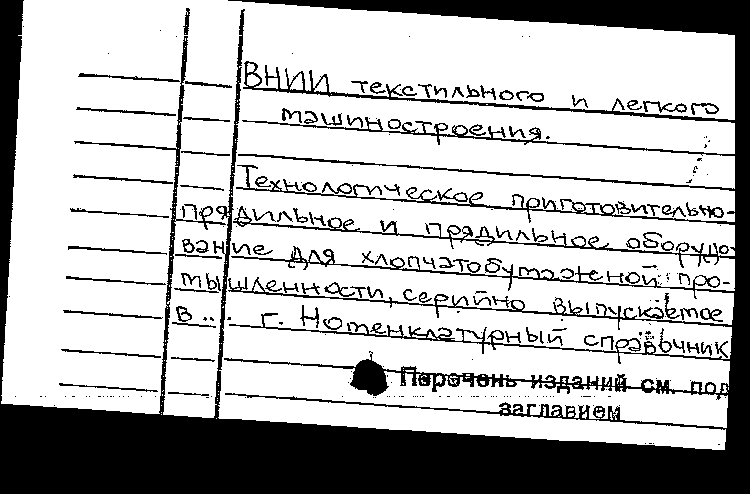 ВНИИ текстильного и легкого
машиностроения.
Технологическое приготовительно-
прядильное и прядильное оборудо
вание для хлопчатобумажной про-
мышленности, серийно выпускаемое
в ... г. Номенклатурный справочник
Перечень изданий см. под
заглавием